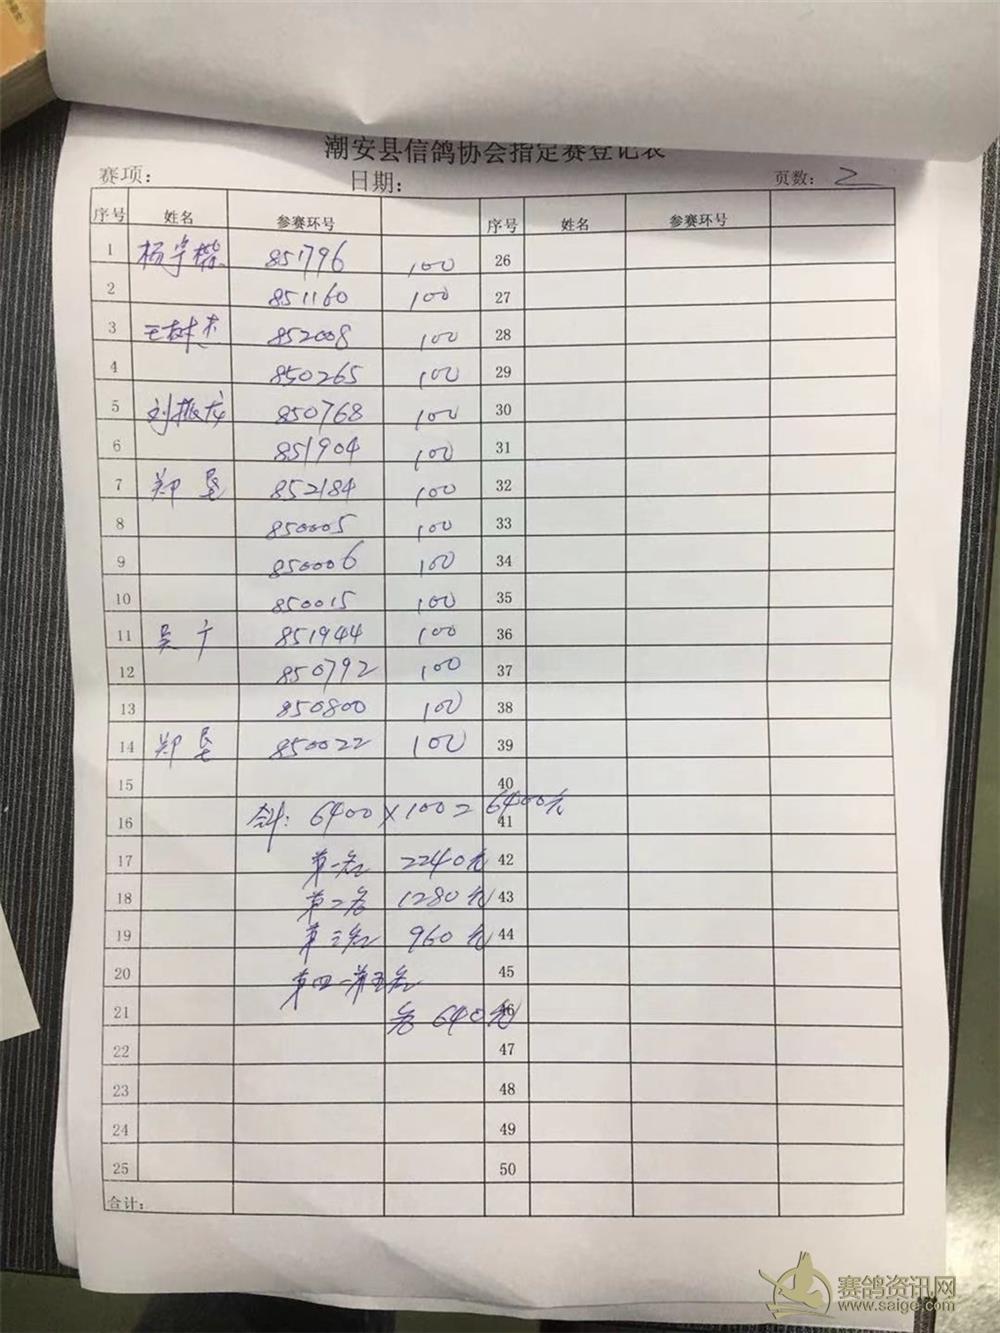 潮安县信鸽协会指定赛登记表
赛项： 日期： 页数：2
序号 姓名 参赛环号 序号 姓名 参赛环号
1 杨宇楷 851796 100 26
2 851160 100 27
3 王树杰 852008 100 28
4 850265 100 29
5 刘振龙 850768 100 30
6 851904 100 31
7 郑垦 852184 100 32
8 850005 100 33
9 850006 100 34
10 850015 100 35
11 吴广 851944 100 36
12 850792 100 37
13 850800 100 38
14 郑垦 850022 100 39
15 40
16 合计：6400×100=6400元 41
17 第一名 2240元 42
18 第二名 1280元 43
19 第三名 960元 44
20 第四-第五名 45
21 各 640元 46
22 47
23 48
24 49
25 50
合计：
赛鸽资讯网
www.saige.com